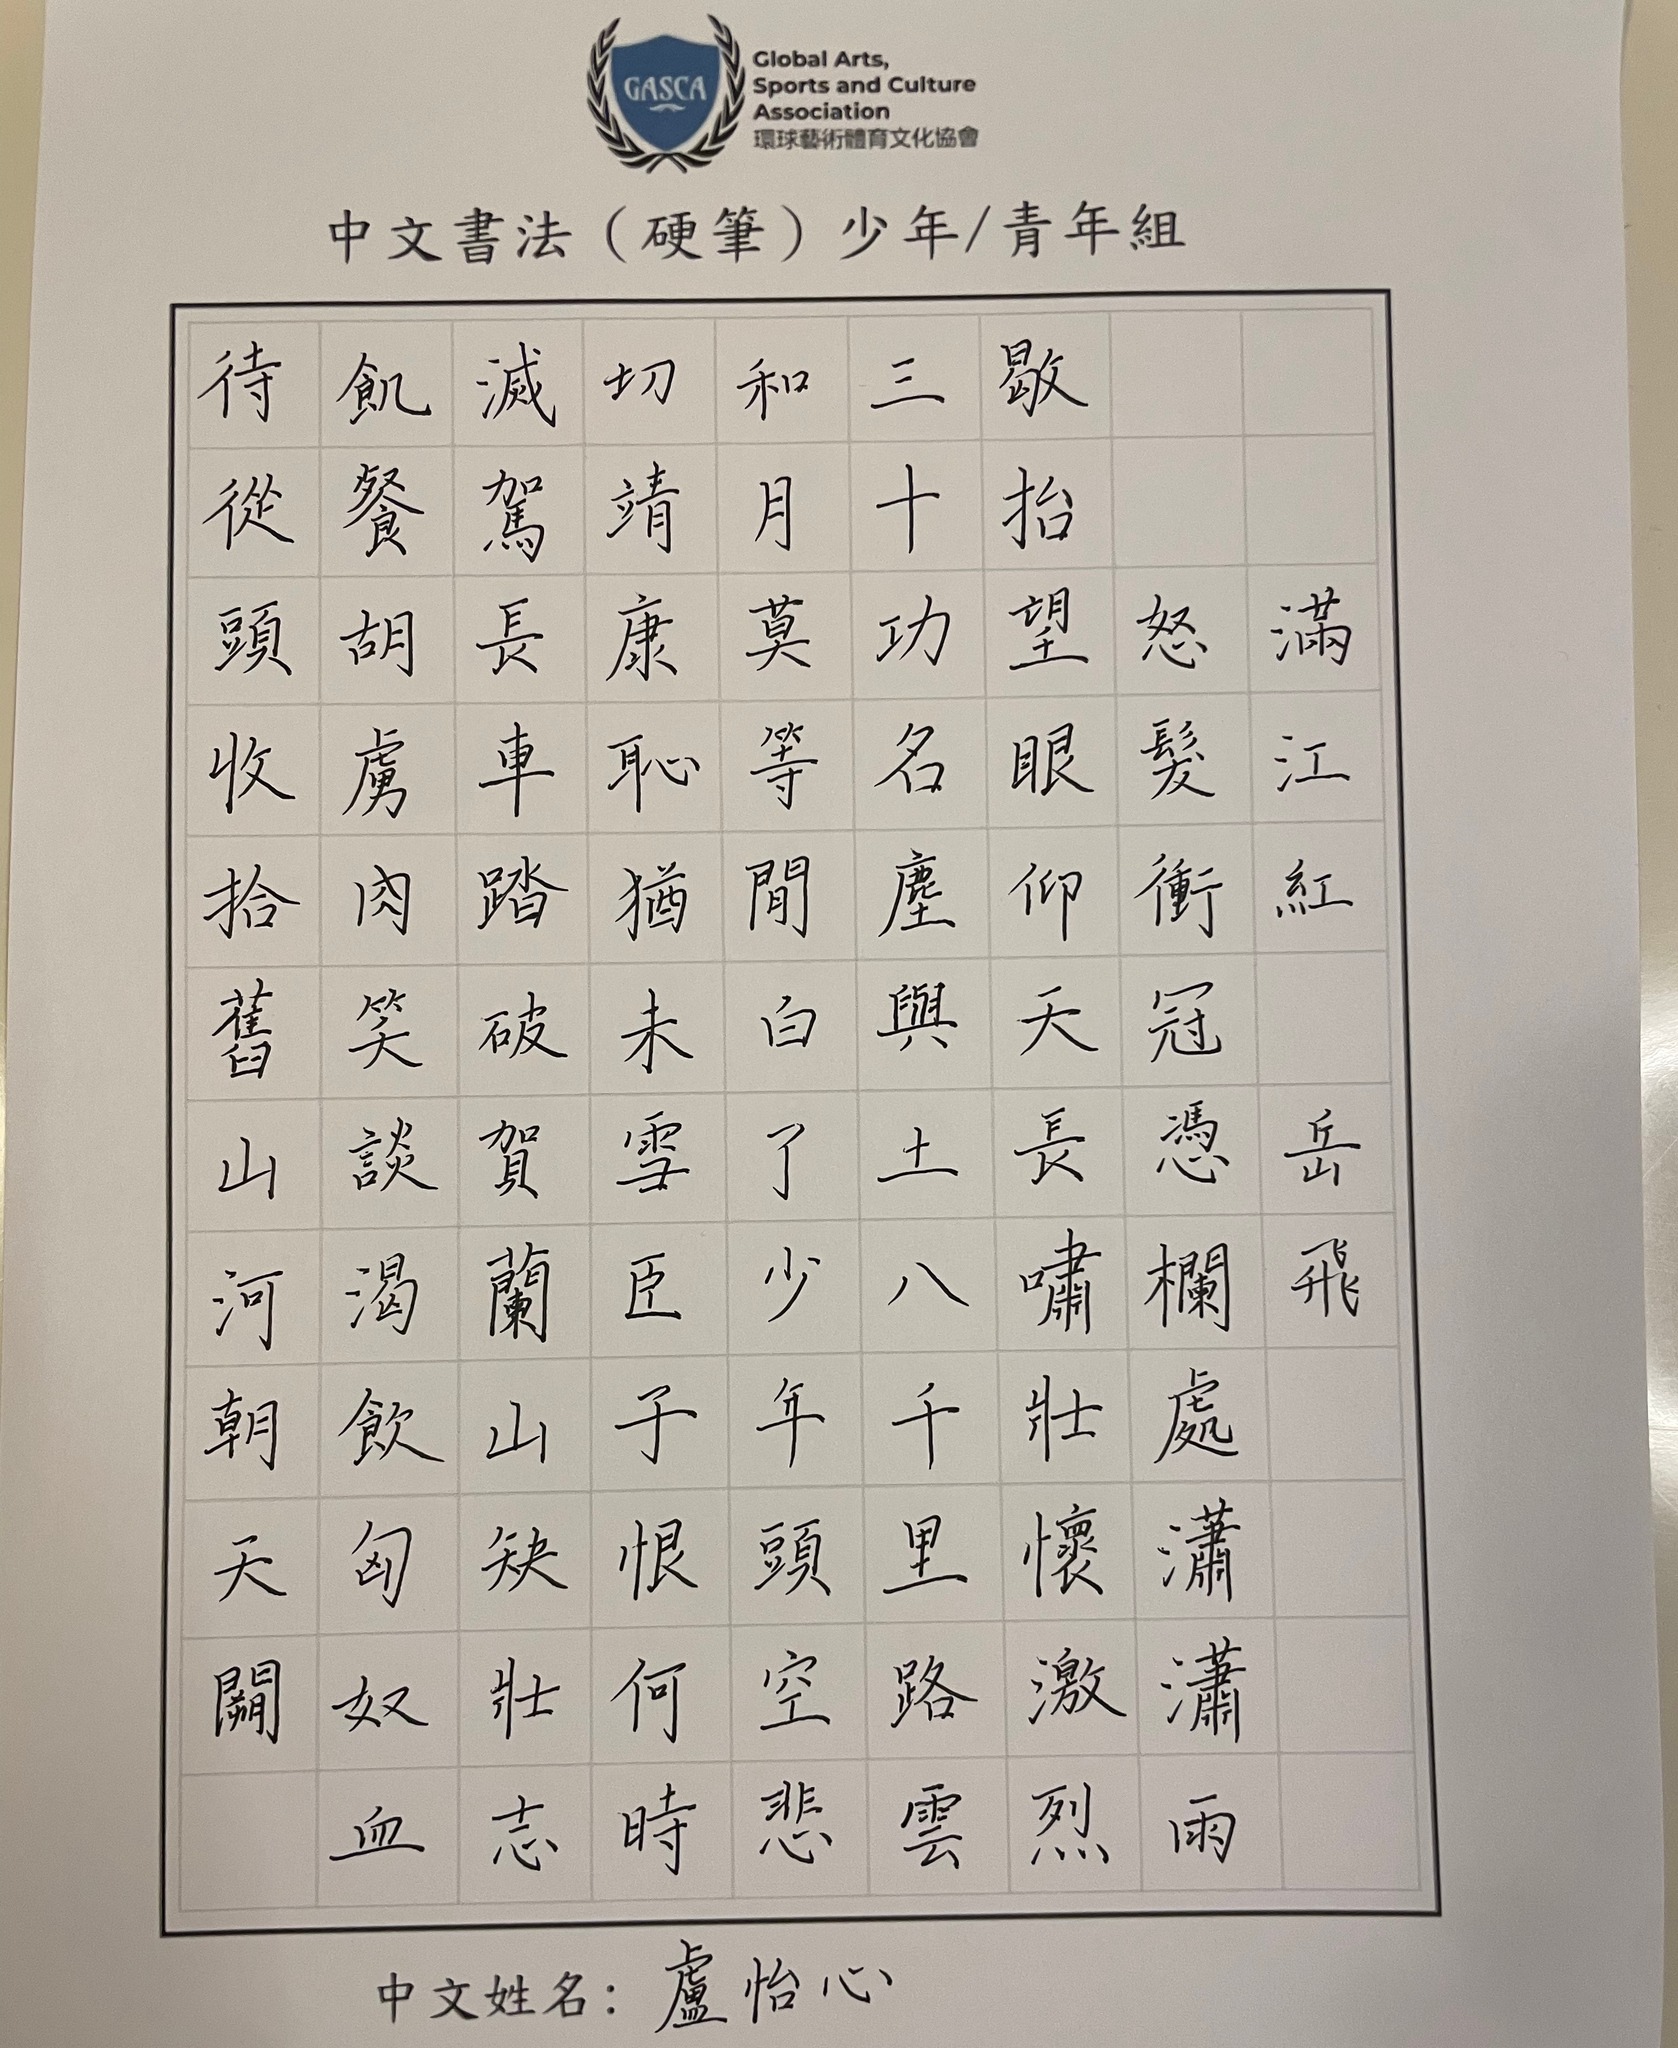 GASCA
Global Arts,
Sports and Culture
Association
環球藝術體育文化協會
中文書法（硬筆）少年/青年組
滿江紅 岳飛
怒髮衝冠憑欄處瀟瀟雨
歇抬望眼仰天長嘯壯懷激烈
三十功名塵與土八千里路雲
和月莫等閒白了少年頭空悲
切靖康恥猶未雪臣子恨何時
滅駕長車踏破賀蘭山缺壯志
飢餐胡虜肉笑談渴飲匈奴血
待從頭收拾舊山河朝天闕
中文姓名：盧怡心